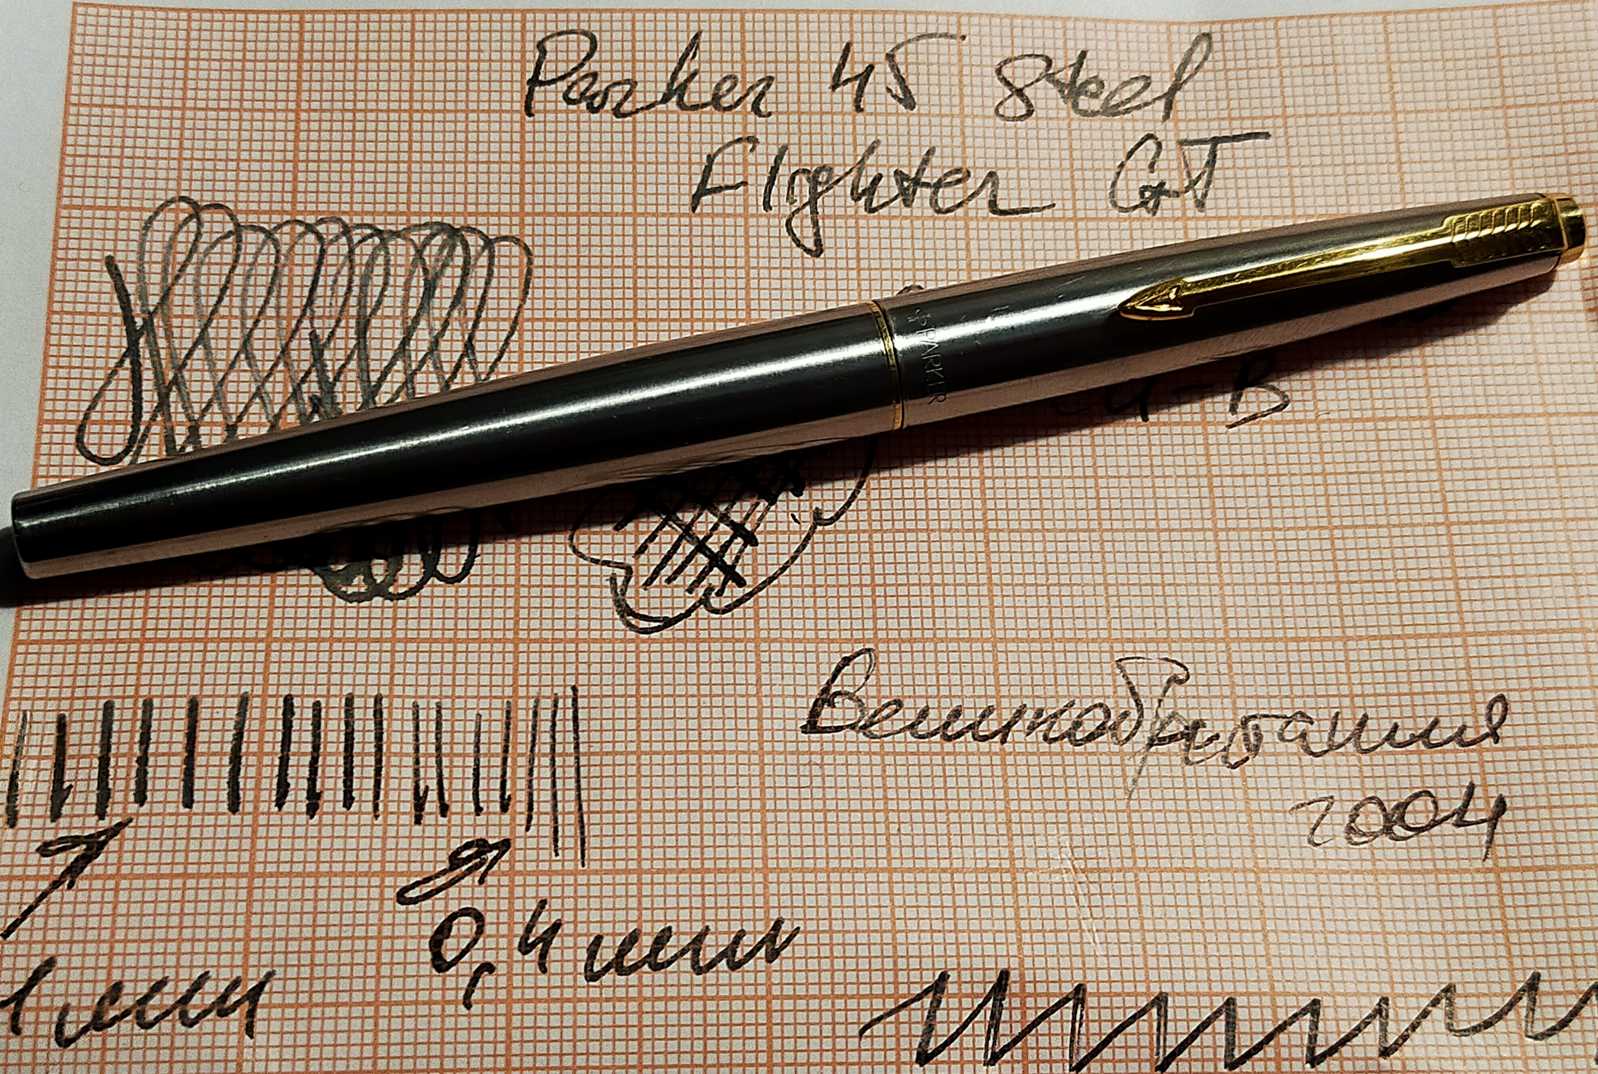 Parker 45 Steel
Flighter GT
PARKER
B
Великобритания
2004
0,4 мм
1 мм